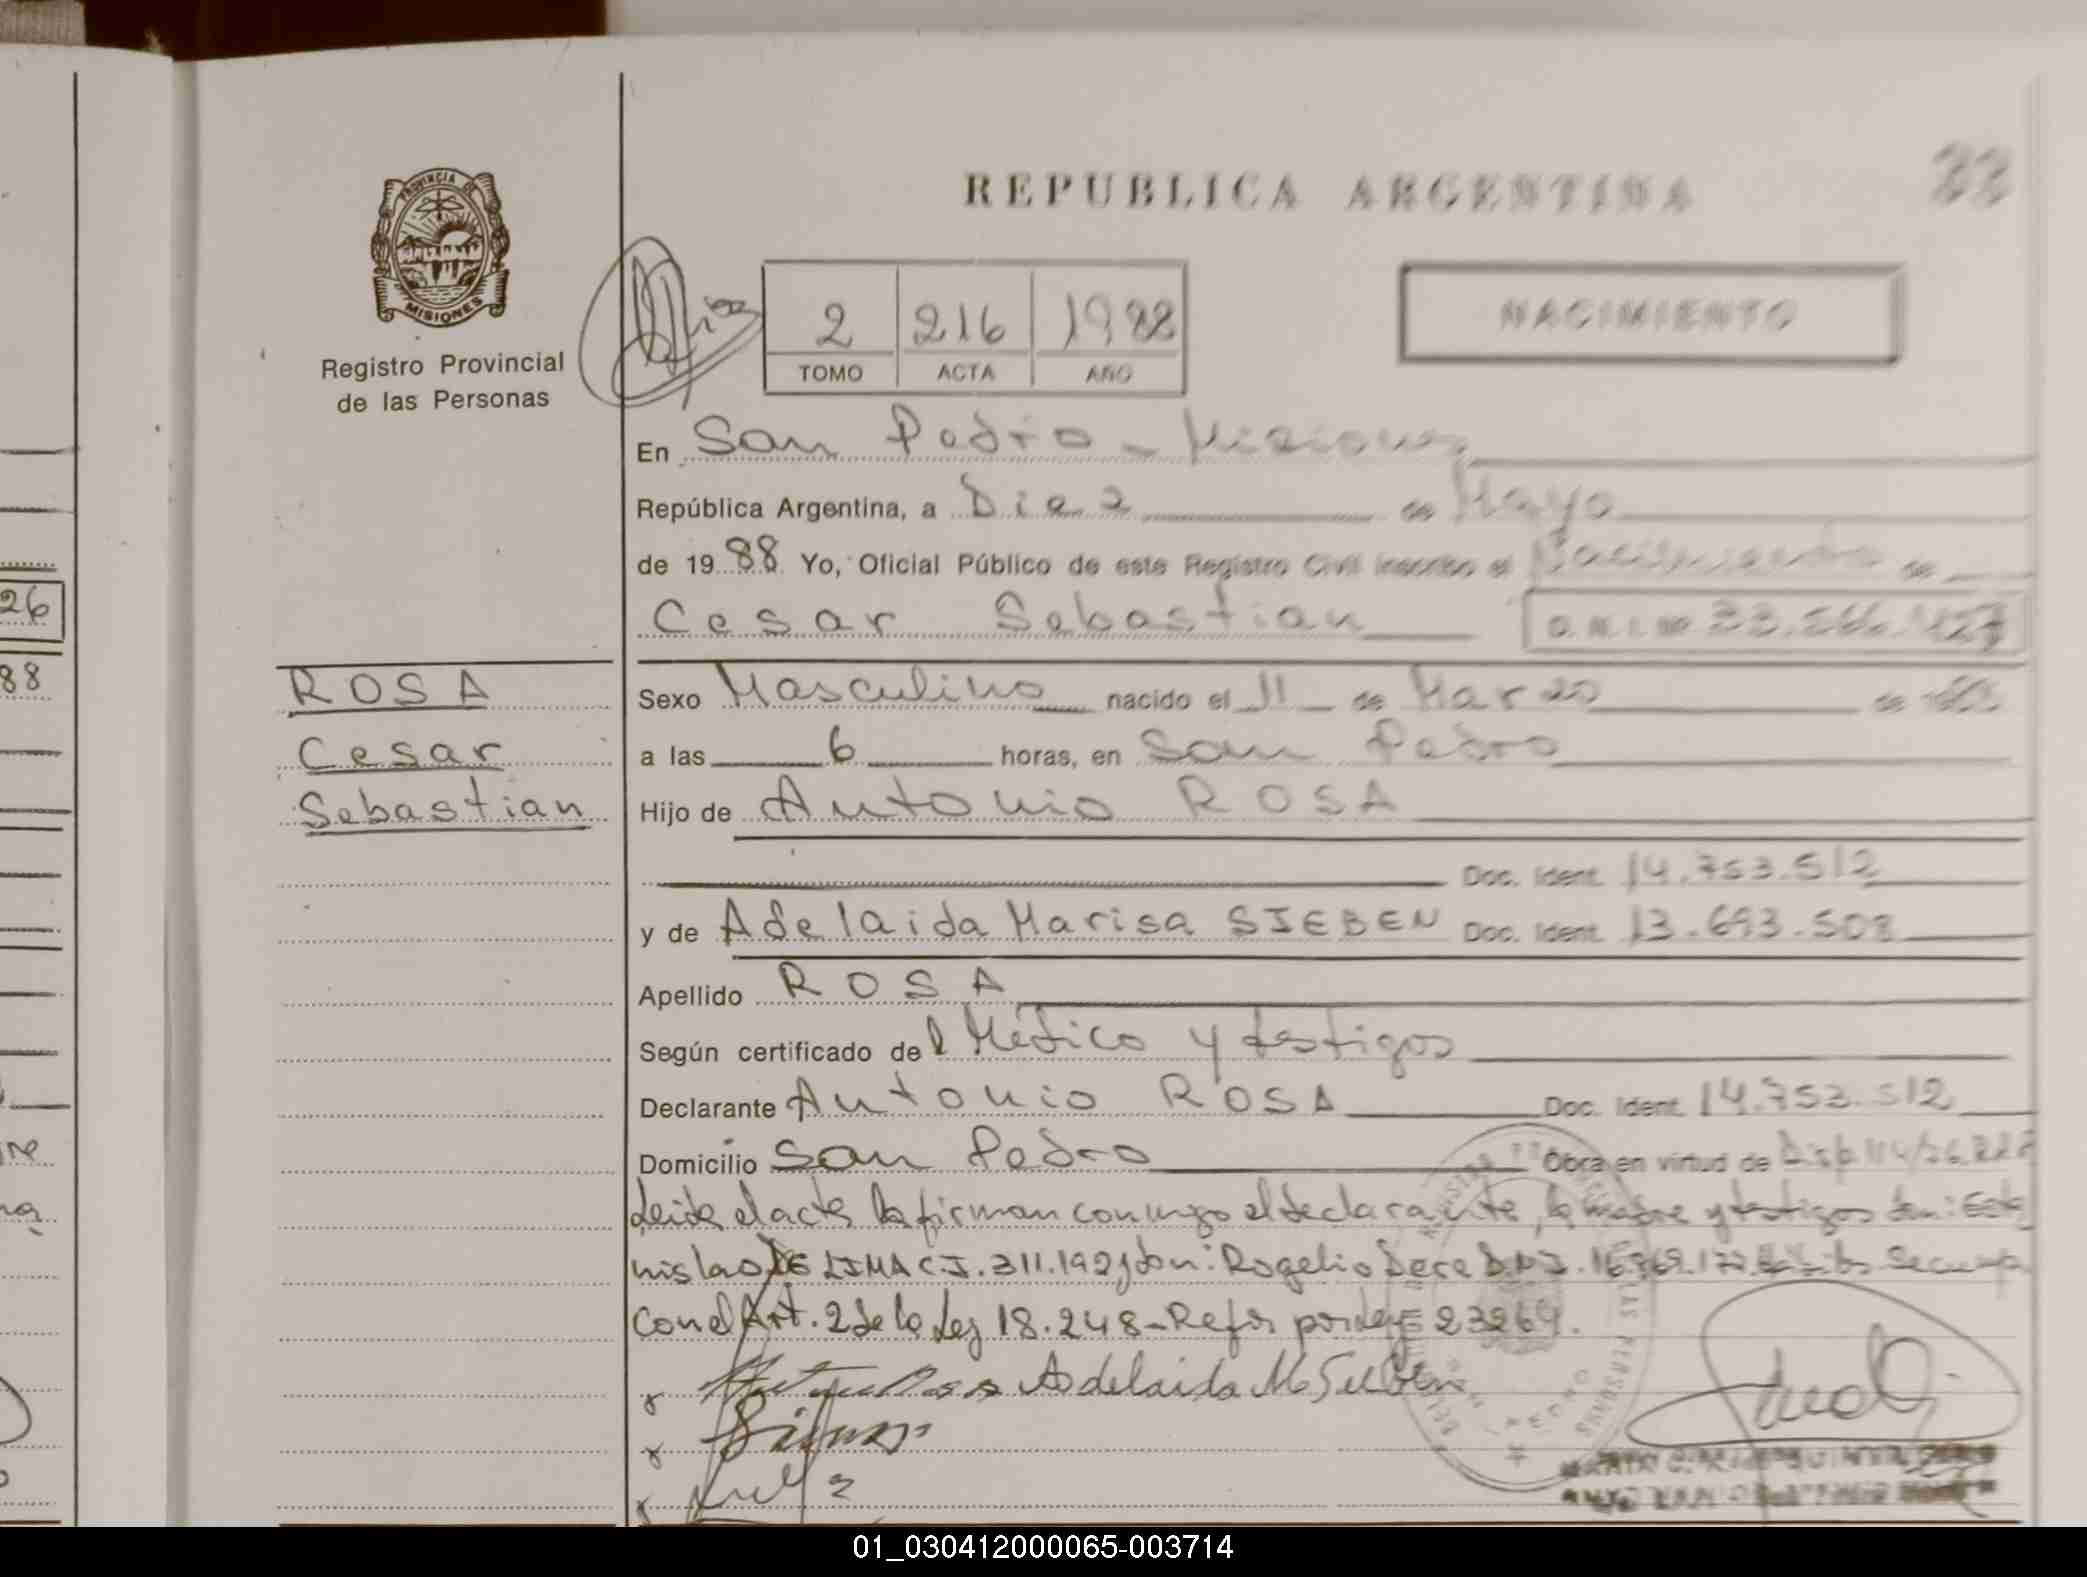 26
88
PROVINCIA DE
MISIONES
Registro Provincial
de las Personas
ROSA
Cesar
Sebastian
REPUBLICA ARGENTINA
2 216 1988
TOMO ACTA AÑO
NACIMIENTO
En San Pedro - Misiones
República Argentina, a Diez de Mayo
de 1988 Yo, Oficial Público de este Registro Civil inscribo el Nacimiento de
Cesar Sebastian
Sexo Masculino nacido el 11 de Marzo de
a las 6 horas, en San Pedro
Hijo de Antonio ROSA
Doc. Ident. 14.753.512
y de Adelaida Marisa SIEBEN Doc. Ident. 13.693.508
Apellido ROSA
Según certificado del Médico y testigos
Declarante Antonio ROSA Doc. Ident. 14.753.512
Domicilio San Pedro Obra en virtud de
Leida el acta la firman conmigo el declarante, la madre y testigos don: Esta
nislao DE LIMA C.I. 311.192 y don: Rogelio
Con el Art. 2 de la Ley 18.248 - Refor por Ley 23264.
Adelaida M Sieben
01_030412000065-003714